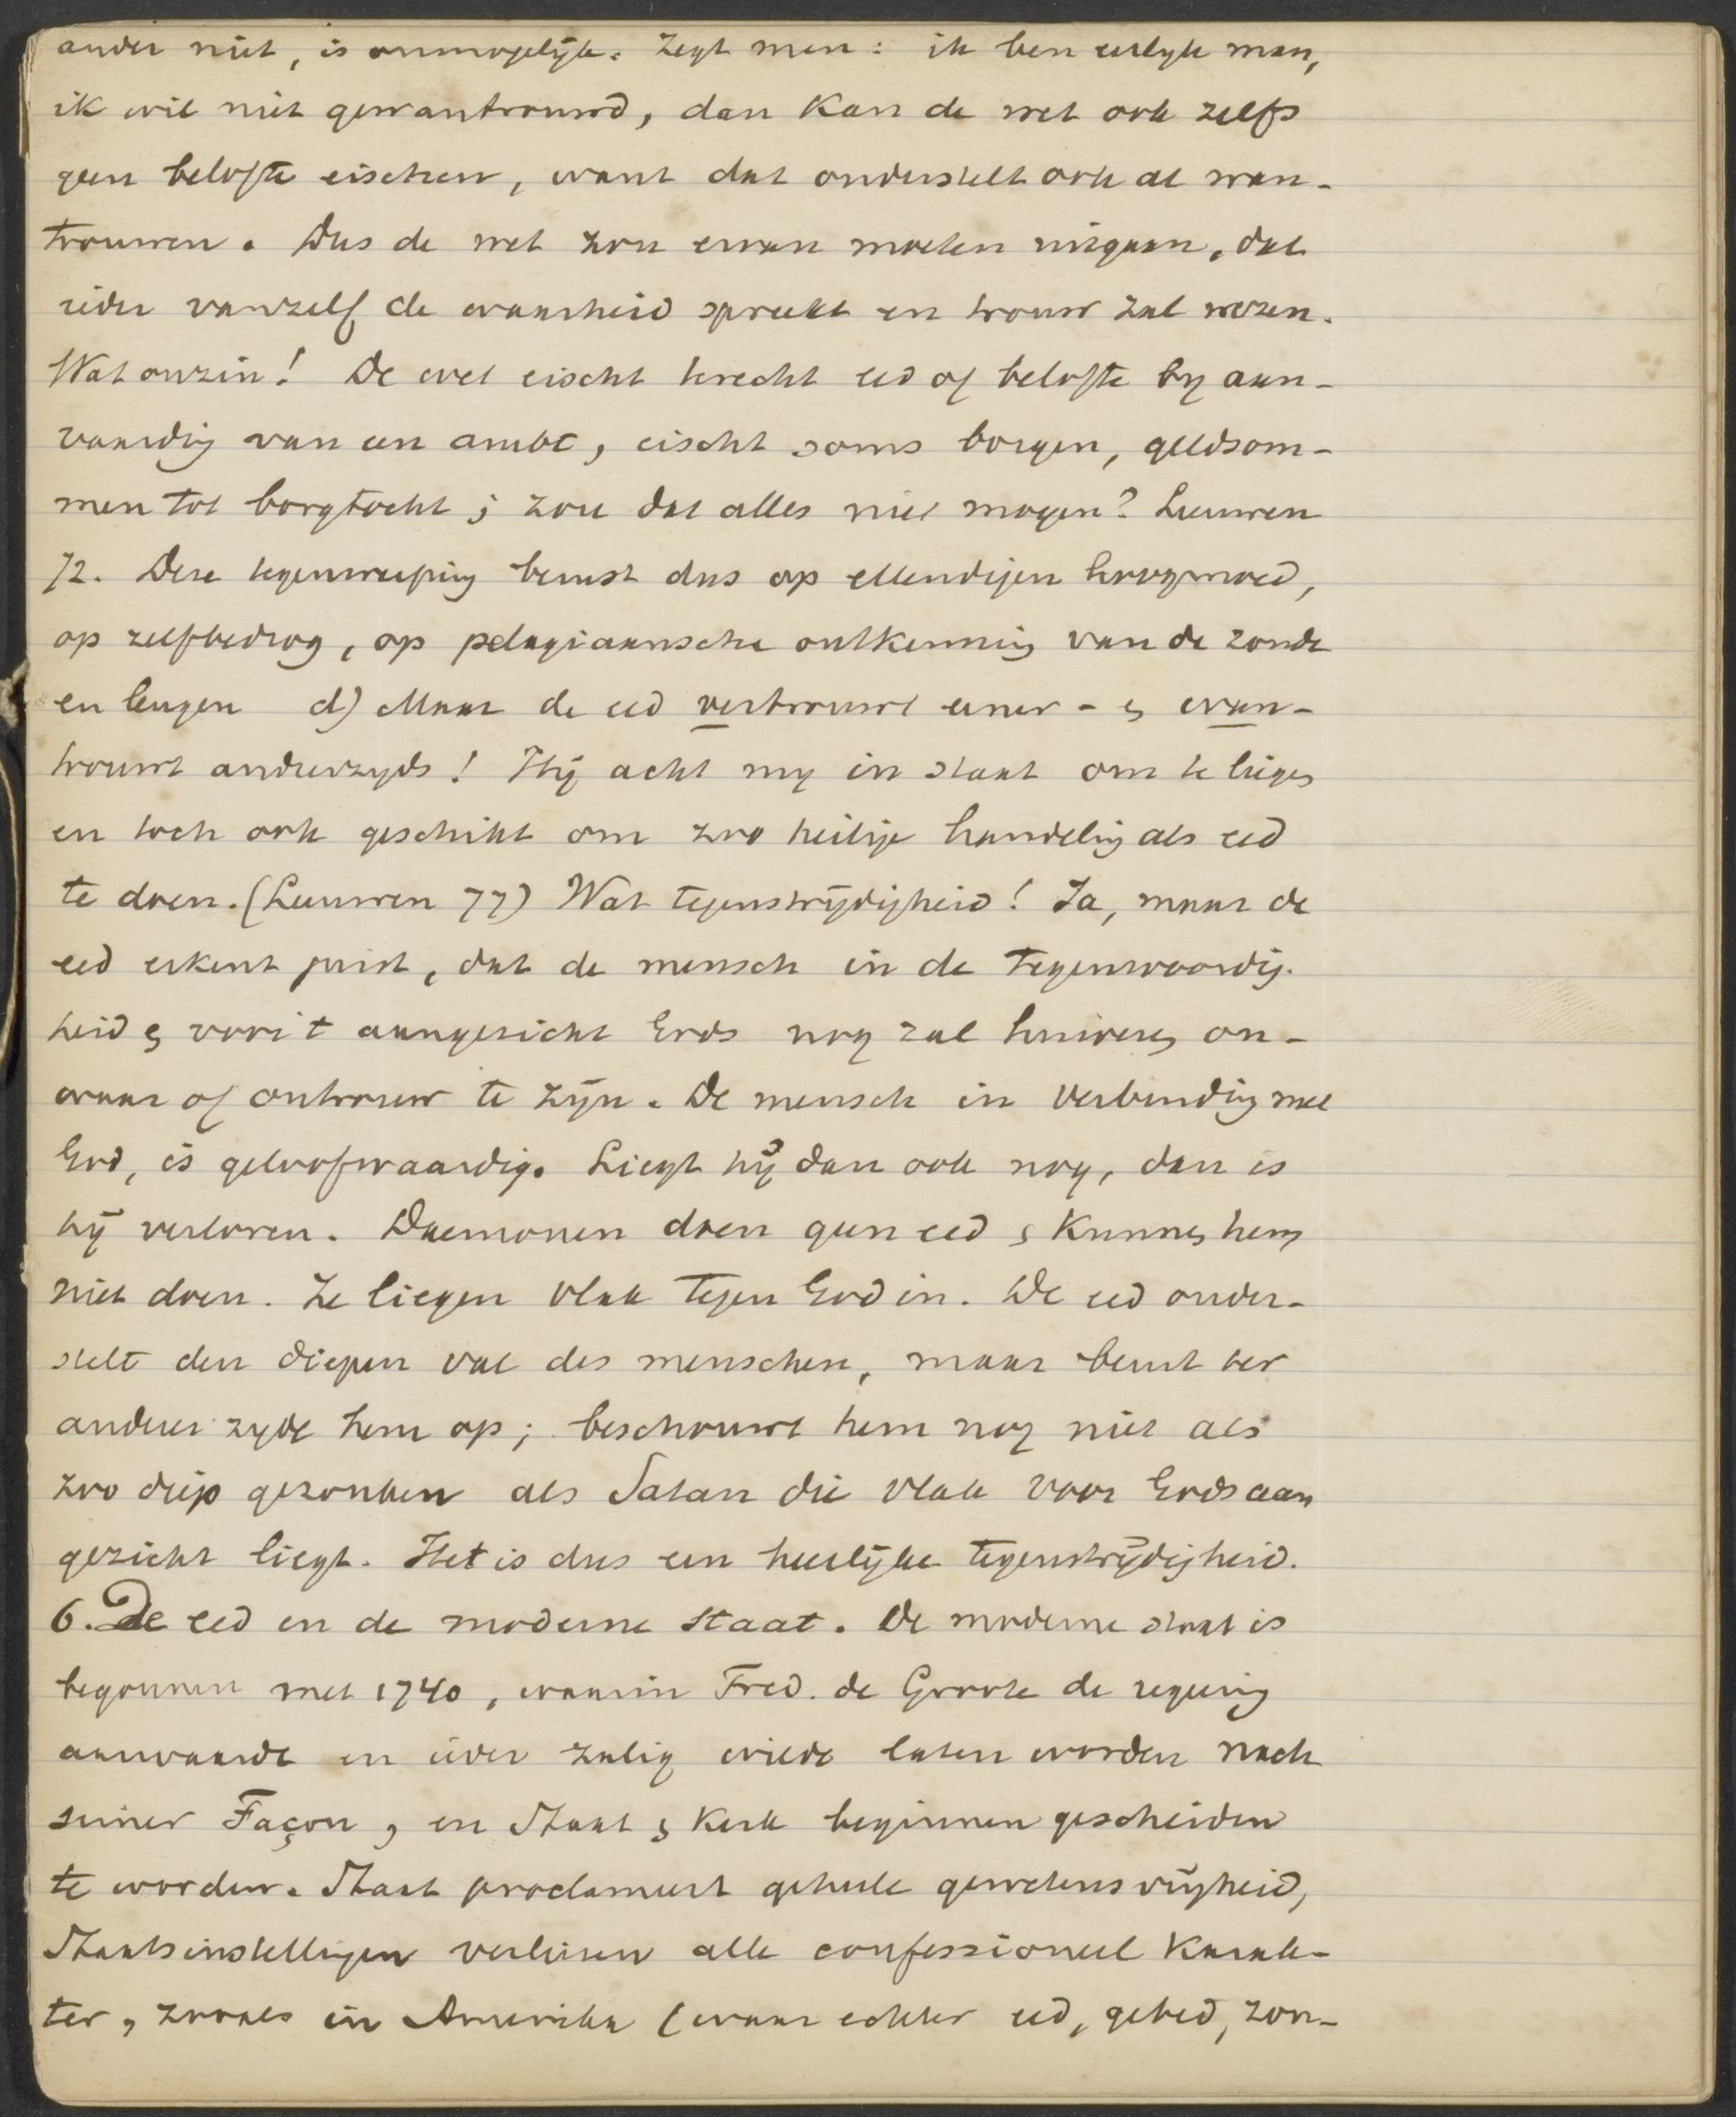 ander niet, is onmogelijk. Zegt men: ik ben eerlyk man,
ik wil niet gewantrouwd, dan kan de wet ook zelfs
geen belofte eischen, want dat onderstelt ook al wan-
trouwen. Dus de wet zou ervan moeten uitgaan, dat
ieder vanzelf de waarheid spreekt en trouw zal wezen.
Wat onzin! De wet eischt terecht eed of belofte by aan-
vaardig van een ambt, eischt soms borgen, geldsom-
men tot borgtocht; zou dat alles niet mogen? Leeuwen
72. Deze tegenwerping berust dus op ellendigen hoogmoed,
op zelfbedrog, op pelagiaansche ontkenning van de zonde
en leugen d) Maar de eed vertrouwt ener- & wan-
trouwt anderzyds! Hij acht my in staat om te liegen
en toch ook geschikt om zoo heilige handeling als eed
te doen. (Leeuwen 77) Wat tegenstrijdigheid! Ja, maar de
eed erkent juist, dat de mensch in de tegenwoordig-
heid & voor 't aangezicht Gods nog zal huiveren on-
waar of ontrouw te zijn. De mensch in verbinding met
God, is geloofwaardig. Liegt hij dan ook nog, dan is
hij verloren. Daemonen doen geen eed & kunnen hem
niet doen. Ze liegen vlak tegen God in. De eed onder-
stelt den diepen val des menschen, maar beurt ter
anderer zyde hem op; beschouwt hem nog niet als
zoo diep gezonken als Satan die vlak voor Gods aan
gezicht liegt. Het is dus een heerlijke tegenstrijdigheid.
6. De eed en de moderne staat. De moderne staat is
begonnen met 1740, waarin Fred. de Groote de regering
aanvaardt en ieder zalig wilde laten worden nach
seiner Façon, en Staat & Kerk beginnen gescheiden
te worden. Staat proclameert geheele gewetensvrijheid,
Staatsinstellingen verliezen alle confessioneel karak-
ter, zooals in Amerika (waar echter eed, gebed, zon-